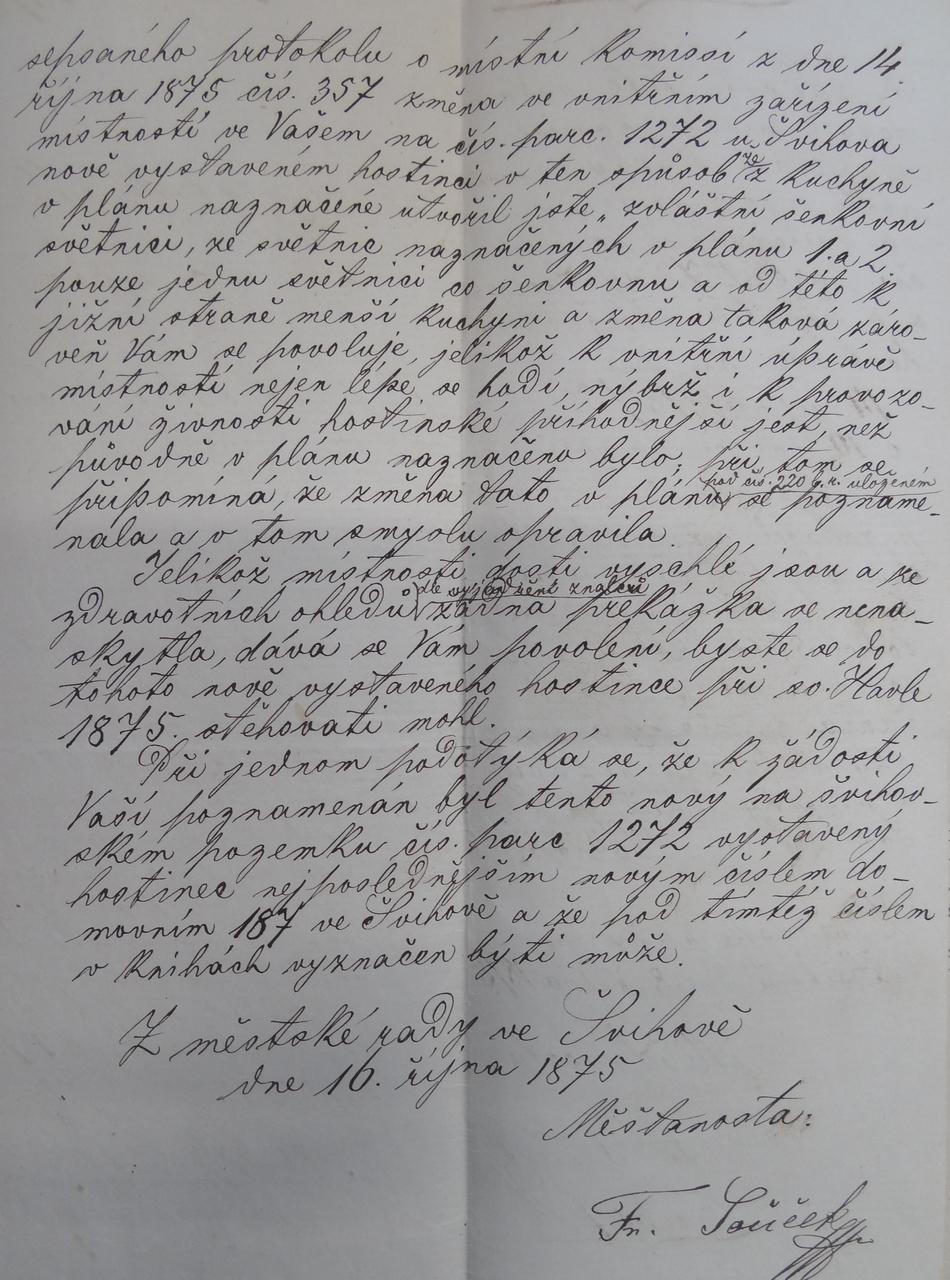 sepsaného protokolu o místní komissí z dne 14.
října 1875 čís. 357 změna ve vnitřním zařízení
místností ve Vašem na čís. parc. 1272 u Švihova
nově vystaveném hostinci v ten spůsob že z kuchyně
v plánu naznačené utvořil jste „ zvláštní šenkovní
světnici, ze světnic naznačených v plánu 1. a 2.
pouze jednu světnici co šenkovnu a od této k
jižní straně menší kuchyni a změna taková záro-
veň Vám se povoluje, jelikož k vnitřní úpravě
místností nejen lépe se hodí, nýbrž i k provozo-
vání živnosti hostinské příhodnější jest, než
původně v plánu naznačeno bylo; při tom se
pod čís. 220 g. r. uloženém
připomíná, že změna tato v plánu se pozname-
nala a v tom smyslu opravila.
Jelikož místnosti dosti vyschlé jsou a ze
dle vyjádření znalců
zdravotních ohledů žádná překážka se nena-
skytla, dává se Vám povolení, byste se do
tohoto nově vystaveného hostince při sv. Havle
1875. stěhovati mohl.
Při jednom podotýká se, že k žádosti
Vaší poznamenán byl tento nový na švihov-
ském pozemku čís. parc 1272 vystavený
hostinec nejposlednějším novým číslem do-
movním 187 ve Švihově a že pod tímtéž číslem
v knihách vyznačen býti může.
Z městské rady ve Švihově
dne 16. října 1875
Měšťanosta:
Fr. Souček